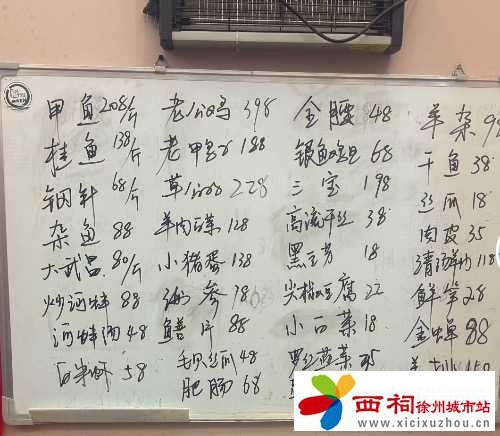 甲鱼208/斤
桂鱼138/斤
钢针68/斤
杂鱼88
大武昌80/斤
炒河蚌88
河蚌肉48
白米虾58
老公鸡398
老鸭188
草公鸡228
羊肉菜128
小猪蛋138
海参78
鳝片88
毛贝丝瓜48
肥肠68
金腰48
银鱼68
三宝198
高流干丝38
黑豆芳18
尖椒豆腐22
小白菜18
罗红蔬菜25
羊杂9
干鱼38
丝瓜18
肉皮35
清汤118
鲜笋28
金蝉88
羊排
西祠徐州城市站
www.xicixuzhou.cn